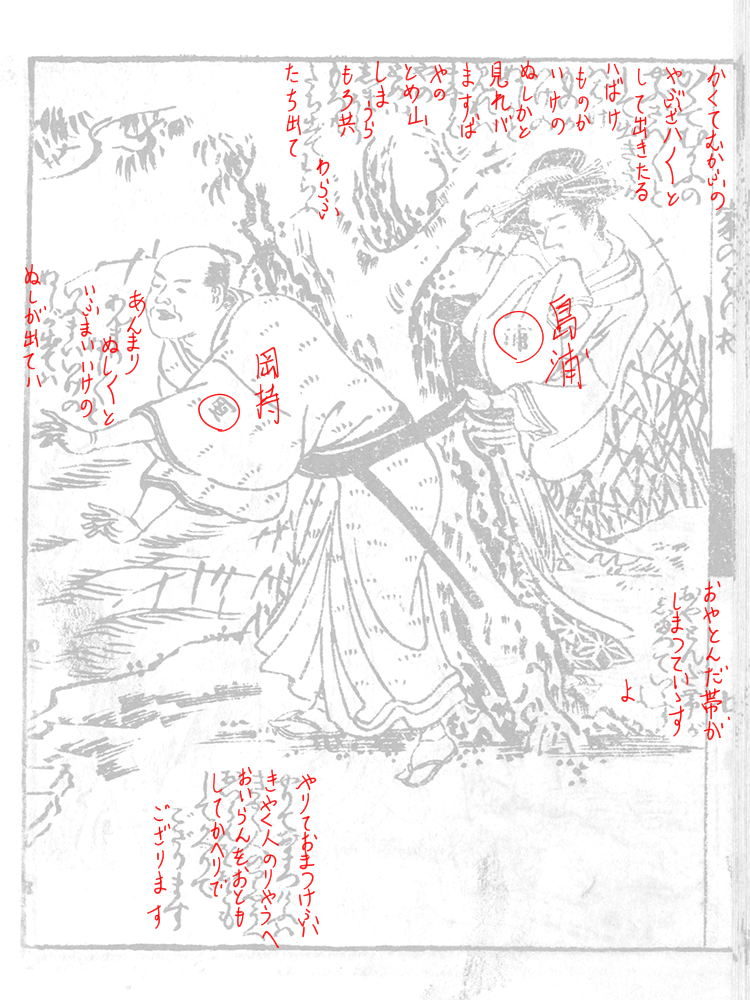 かくてむかふの
やぶざハ〱と
して出きたる
ハばけ
ものか
いけの
ぬしかと
見れバ
ますば
やの
とめ山
しま
うら
もろ共
たち出て
わらふ
島浦
浦
岡持
岡
あんまり
ぬし〱と
いふまいいけの
ぬしが出てハ
おやとんだ帯が
しまつていゝす
よ
やりておまつけふハ
きやく人のりやうへ
おいらんを、おとも
してかへりで
ござります